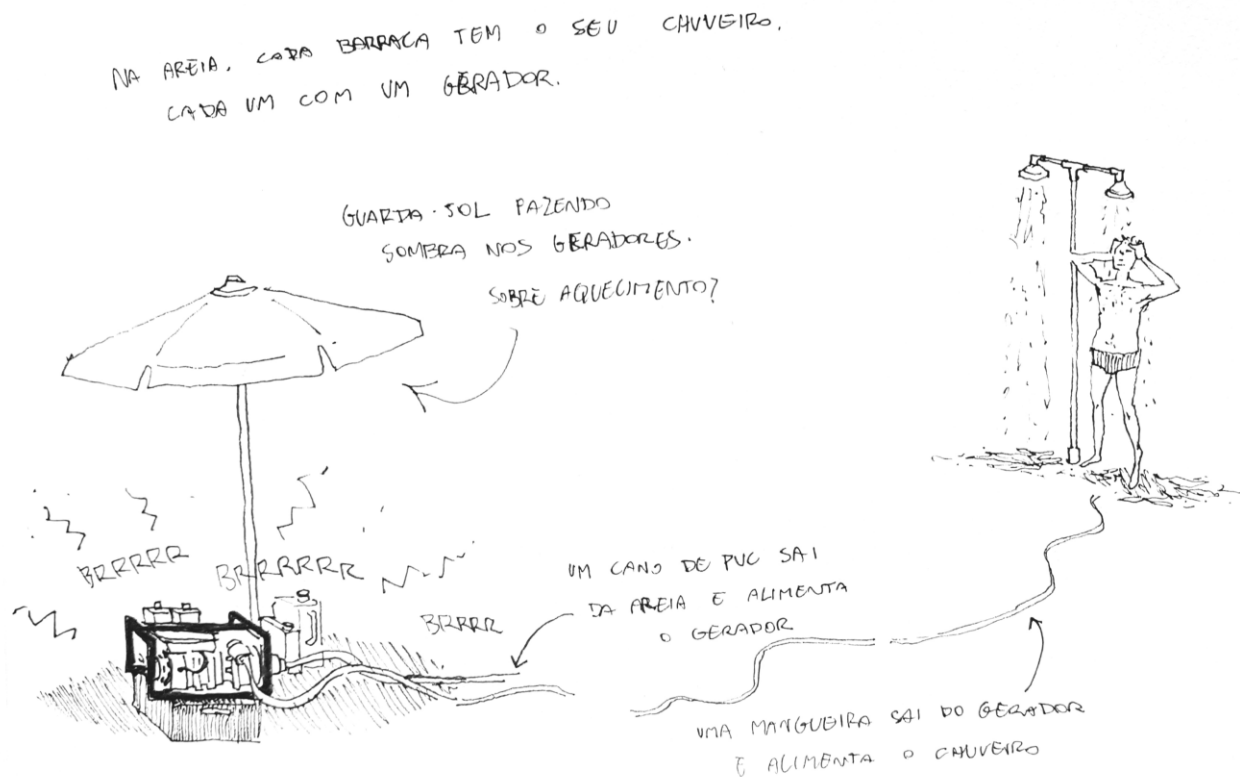 NA AREIA, CADA BARRACA TEM O SEU CHUVEIRO.
CADA UM COM UM GERADOR.
GUARDA-SOL FAZENDO
SOMBRA NOS GERADORES.
SOBRE AQUECIMENTO?
BRRRRR
BRRRRRRR
BRRRR
UM CANO DE PVC SAI
DA AREIA E ALIMENTA
O GERADOR
UMA MANGUEIRA SAI DO GERADOR
E ALIMENTA O CHUVEIRO